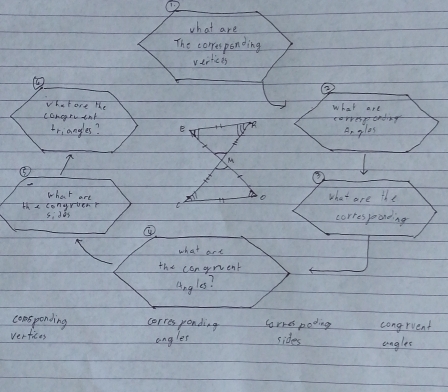 1
what are
The corresponding
vertices
2
what are
corresponding
Angles
3
what are the
corresponding
4
what are
the congruent
Angles?
5
what are
the congruent
sides
6
what are the
congruent
triangles?
E
M
C
corsponding
vertices
corresponding
angles
correspoding
sides
congruent
angles